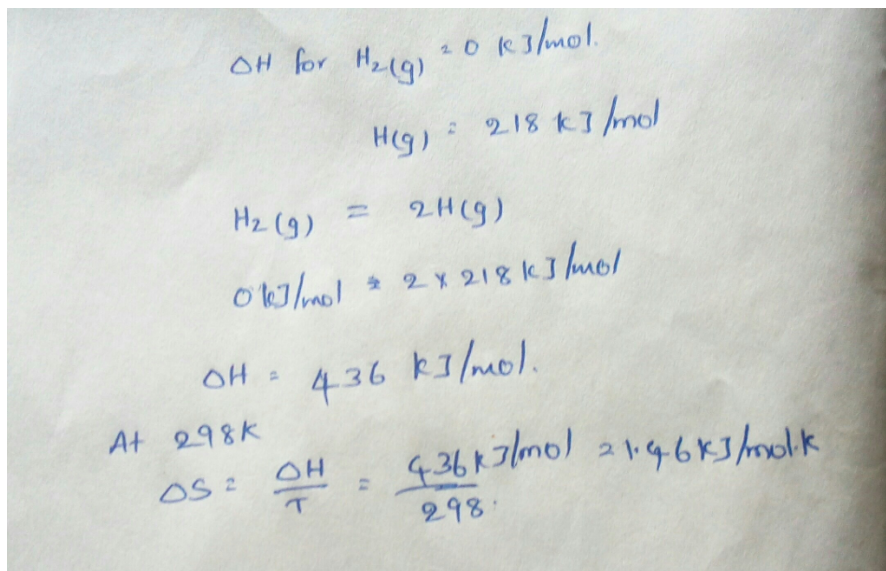 ΔH for H₂(g) = 0 kJ/mol.
H(g) = 218 kJ/mol
H₂(g) = 2H(g)
0 kJ/mol = 2 x 218 kJ/mol
ΔH = 436 kJ/mol.
At 298K
ΔS = ΔH/T = 436 kJ/mol/298. = 1.46 kJ/mol.k